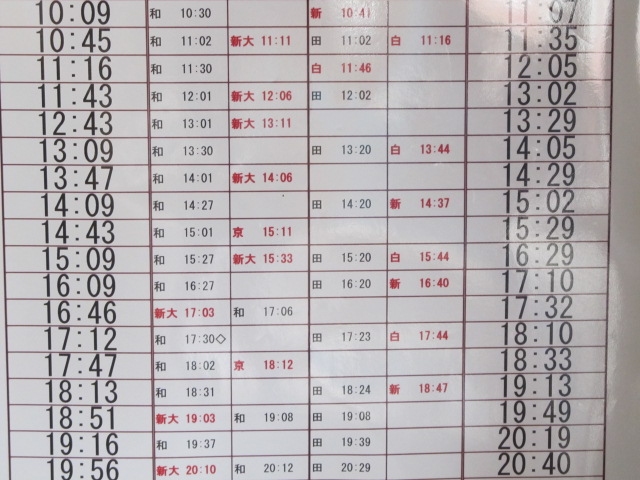 10:09 和 10:30 新 10:41 11:07
10:45 和 11:02 新大 11:11 田 11:02 白 11:16 11:35
11:16 和 11:30 白 11:46 12:05
11:43 和 12:01 新大 12:06 田 12:02 13:02
12:43 和 13:01 新大 13:11 13:29
13:09 和 13:30 田 13:20 白 13:44 14:05
13:47 和 14:01 新大 14:06 14:29
14:09 和 14:27 田 14:20 新 14:37 15:02
14:43 和 15:01 京 15:11 15:29
15:09 和 15:27 新大 15:33 田 15:20 白 15:44 16:29
16:09 和 16:27 田 16:20 新 16:40 17:10
16:46 新大 17:03 和 17:06 17:32
17:12 和 17:30◇ 田 17:23 白 17:44 18:10
17:47 和 18:02 京 18:12 18:33
18:13 和 18:31 田 18:24 新 18:47 19:13
18:51 新大 19:03 和 19:08 田 19:08 19:49
19:16 和 19:37 田 19:39 20:19
19:56 新大 20:10 和 20:12 田 20:29 20:40